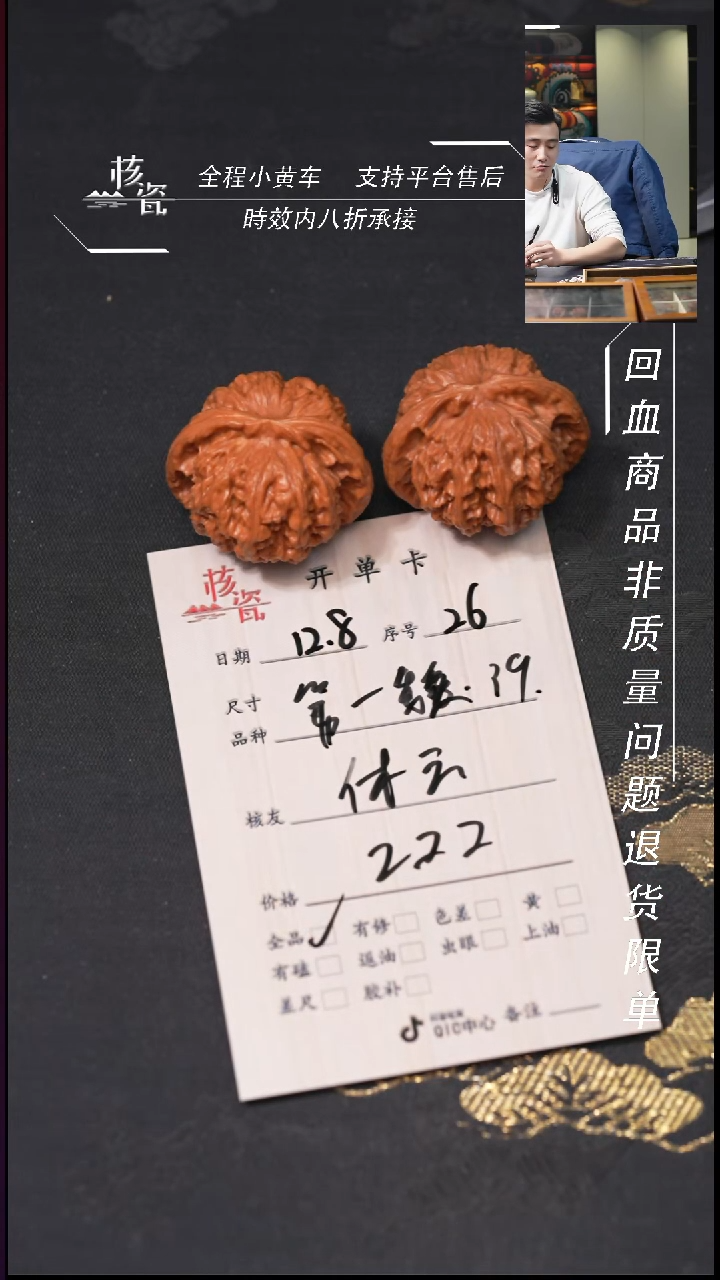 核瓷
全程小黄车 支持平台售后
時效内八折承接
回血商品非质量问题退货限单
核瓷 开单卡
日期 12.8 序号 26
尺寸
品种 第一 39.
核友 休云
价格 222
全品 有修 色差 黄
有磕 返油 虫眼 上油
差尺 胶补
QIC中心 备注